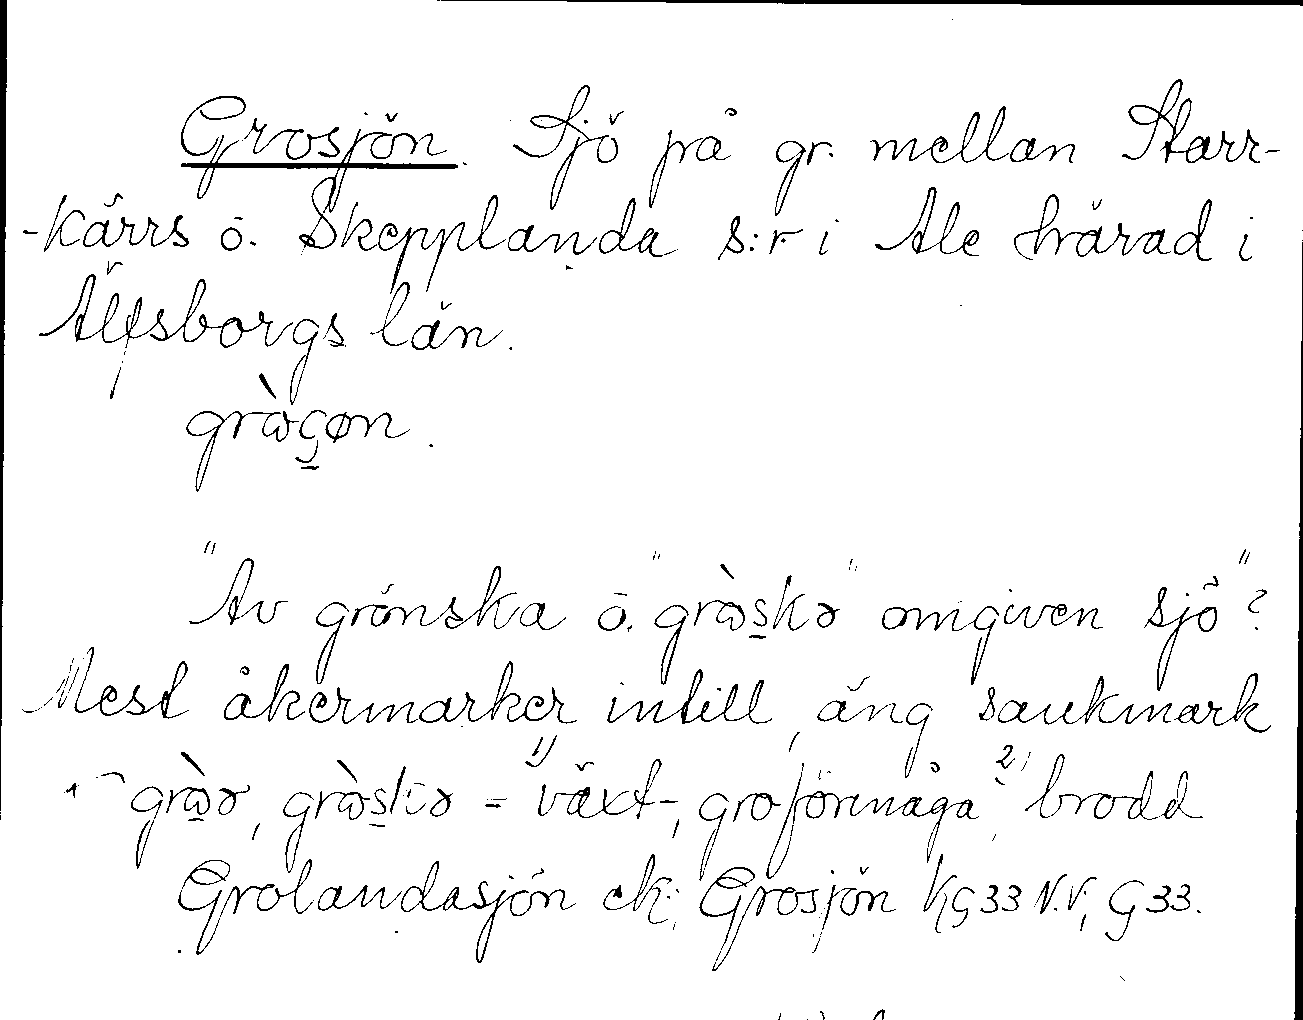 Grosjön. Sjö på gr. mellan Starr-
-kärrs o. Skepplanda s:r i Ale härad i
Älfsborgs län.
grὼʂøn.
"Av grönska o. "grὼskə" omgiven sjö"?
Mest åkermarker intill, äng saukmark
grὼə, grὼskə = 1) växt-, groförmåga, 2) brodd
Grolandasjön ek; Grosjön KG33 N.V, G33.